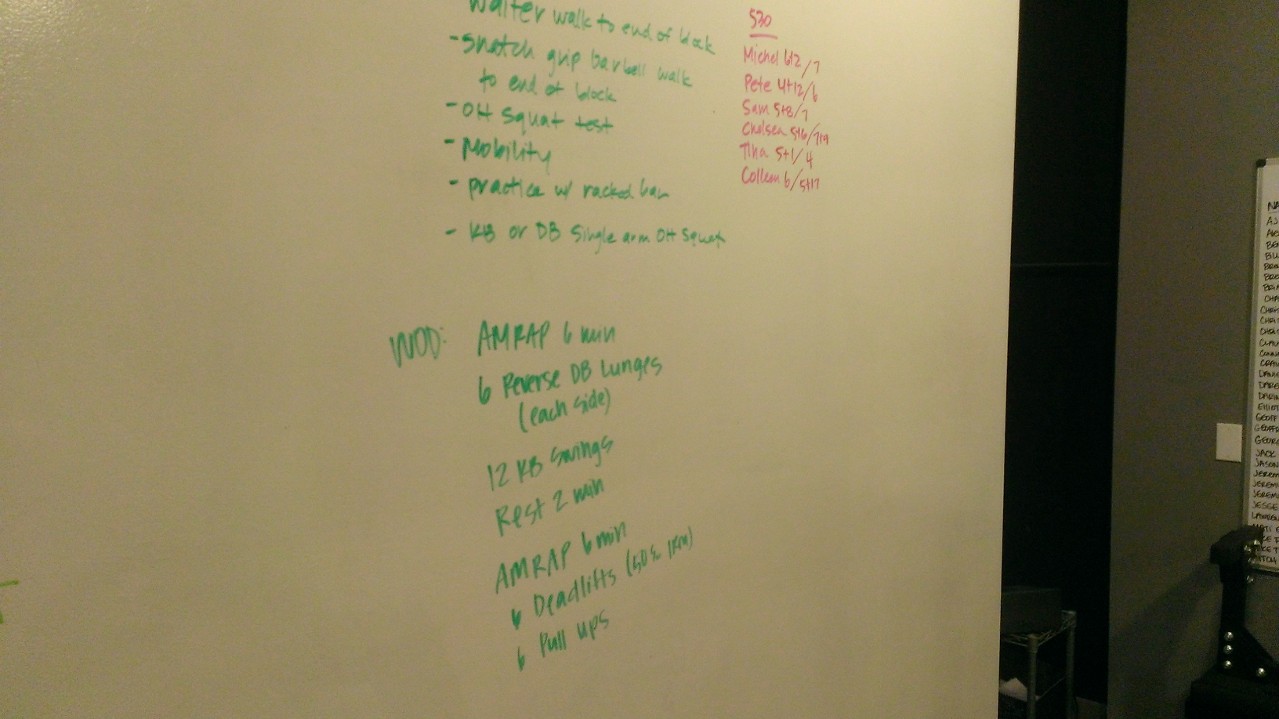 Waiter walk to end of block
- Snatch grip barbell walk
to end of block
- OH squat test
- Mobility
- practice w/ racked bar
- KB or DB Single arm OH Squat
WOD: AMRAP 6 min
6 Reverse DB Lunges
(each side)
12 KB swings
Rest 2 min
AMRAP 6 min
6 Deadlifts (50% 1RM)
6 Pull ups
530
Michel 6+2/7
Pete 4+12/6
Sam 5+8/7
Chelsea 5+6/7+9
Tina 5+1/4
Colleen 6/5+17
NA
AJ
BRIA
CHRIS
CHRIS
CLAU
DARE
Elliot
GEOFF
GEOFF
GEORG
JACK
JASON
JEREM
JEREM
JEREM
JESSE